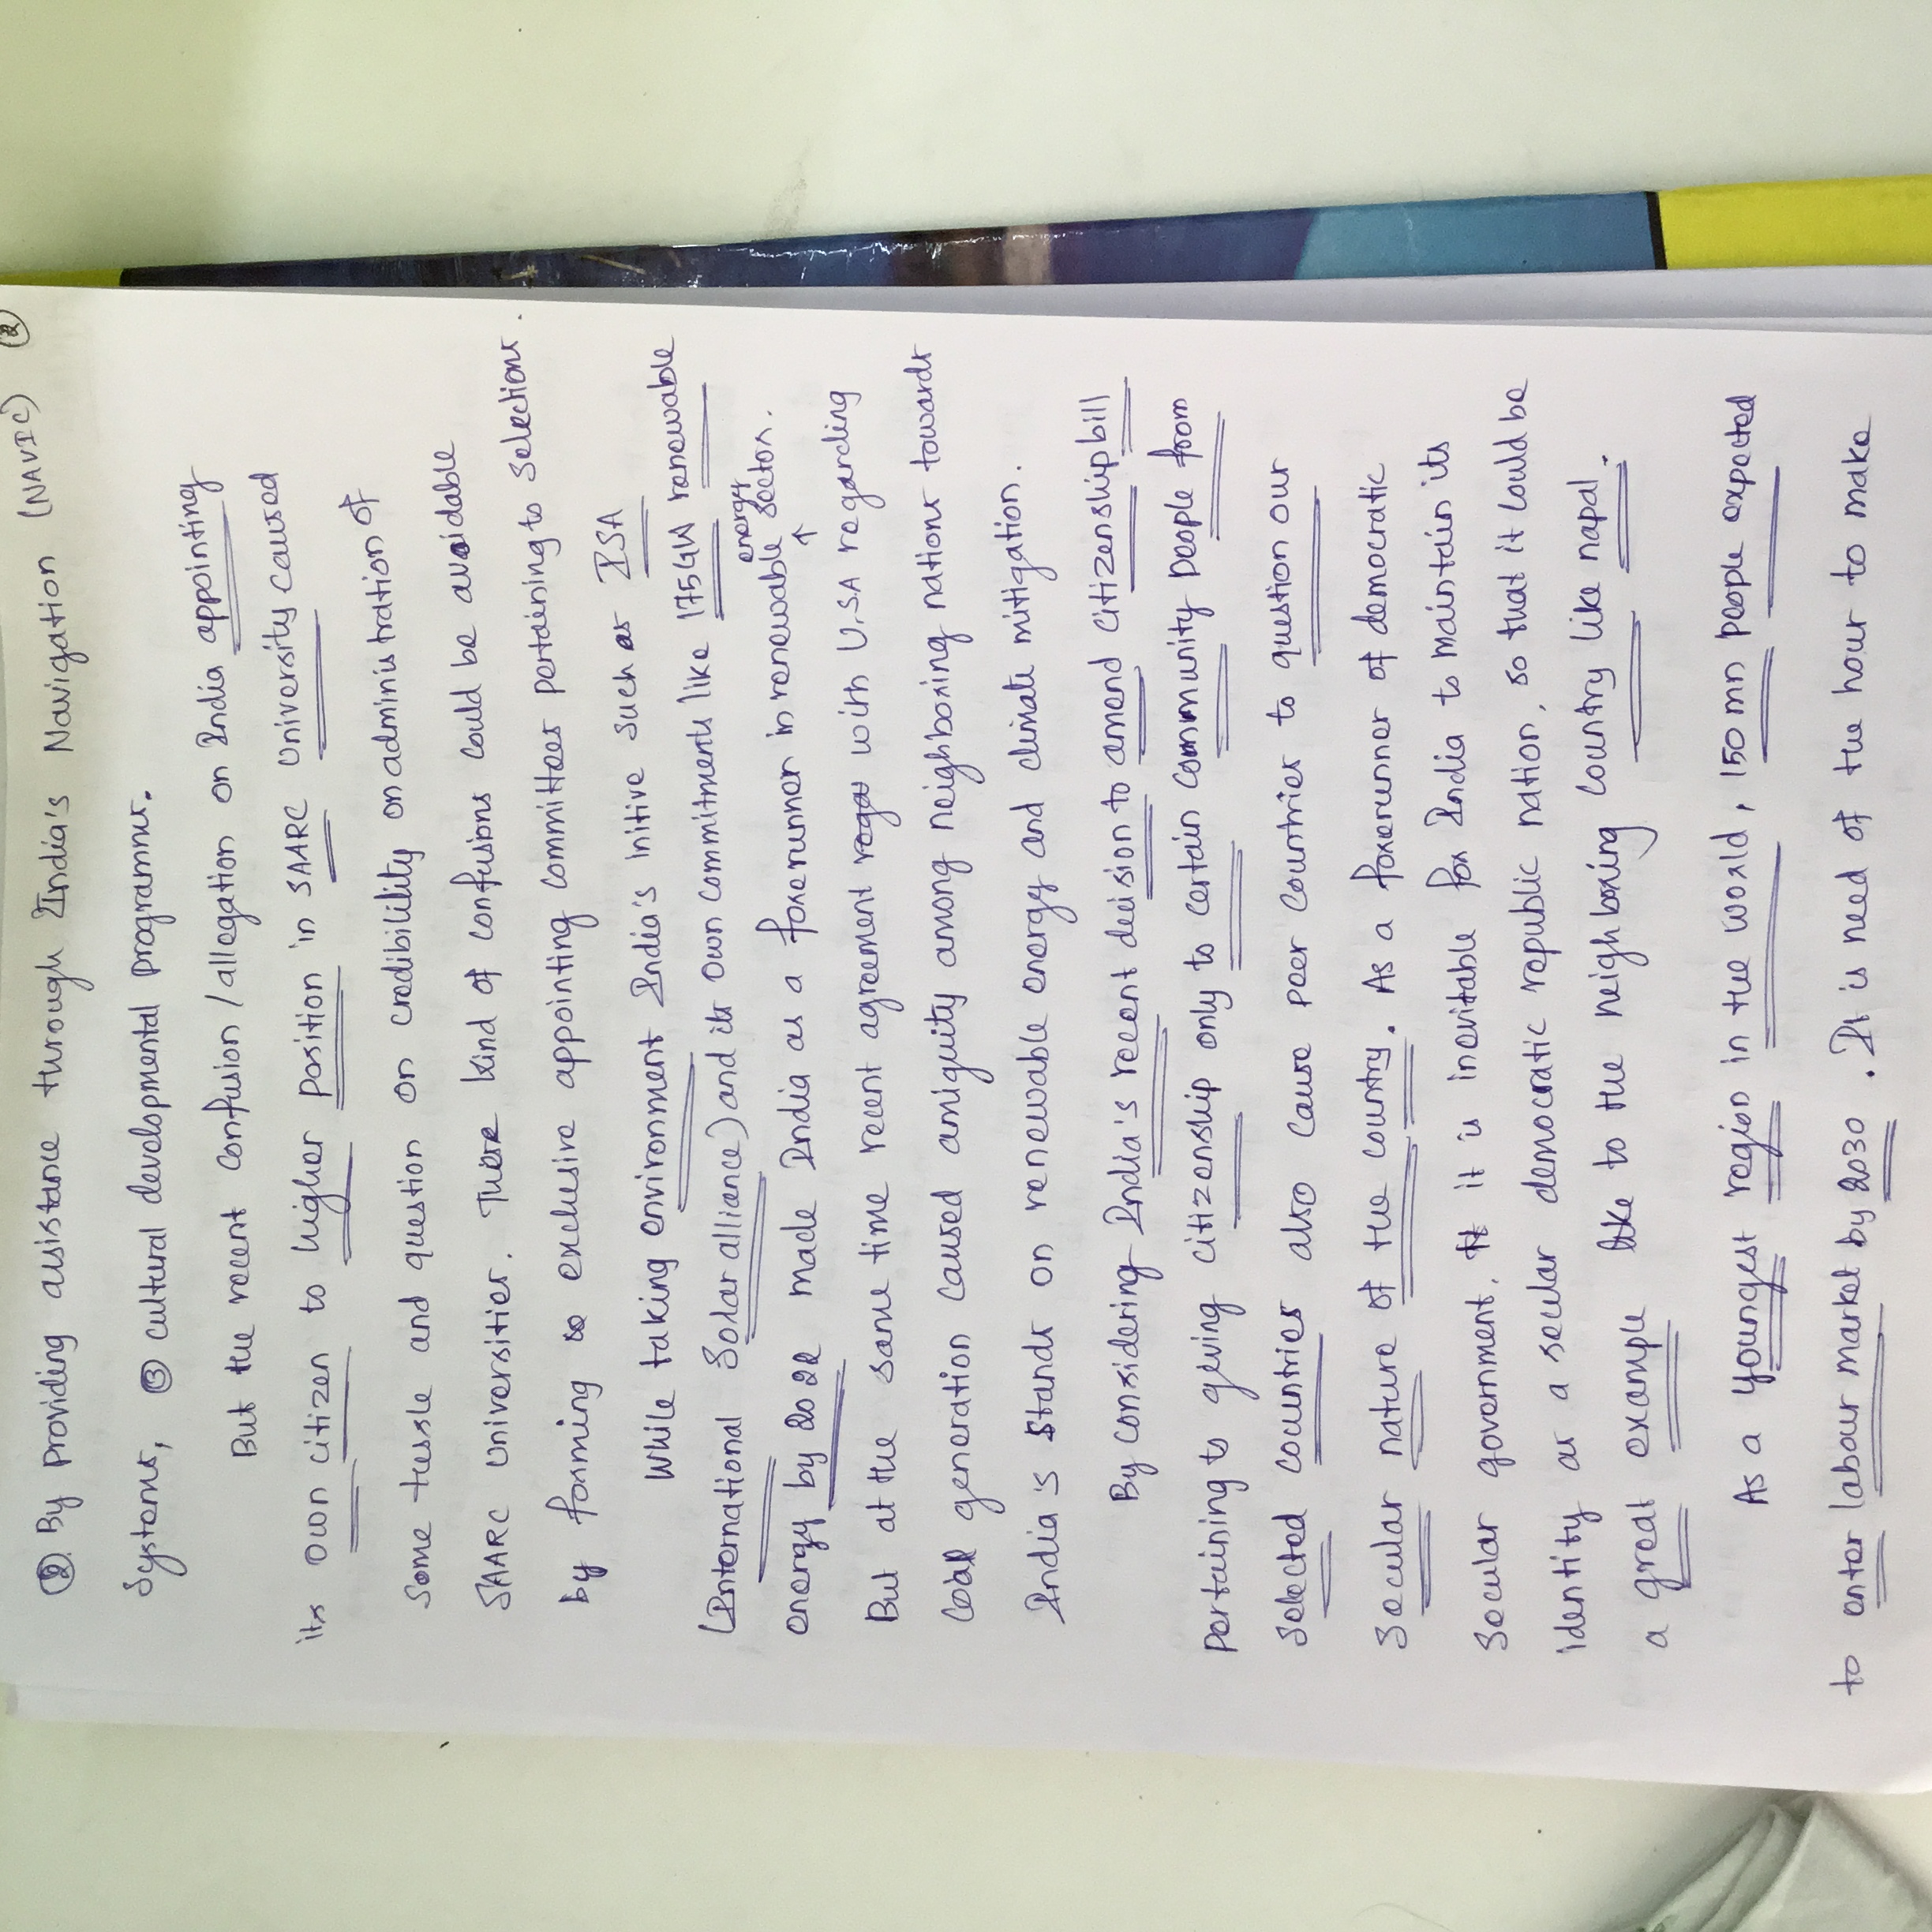 ②
② By providing assistance through India's Navigation (NAVIC)
Systems, ③ cultural developmental programms.
But the recent confusion/allegation on India appointing
its own citizen to higher position in SAARC University caused
Some tussle and question on credibility on administration of
SAARC Universities. These kind of confusions could be avoidable
by forming exclusive appointing committees pertaining to selections.
While taking environment India's initive such as ISA
(International Solar alliance) and its own commitments like 175GW renewable
energy by 2022 made India as a forerunner in renewable energy sector.
But at the same time recent agreement with U.SA regarding
Coal generation caused amiguity among neighboring nations towards
India's stands on renewable energy and climate mitigation.
By considering India's recent decision to amend citizenship bill
pertaining to geving citizenship only to certain community people from
Selected countries also cause peer countries to question our
Secular nature of the country. As a forerunner of democratic
Secular government. it is inevitable for India to maintain its
identity as a secular democratic republic nation, so that it could be
a great example like to the neighboring country like napal.
As a youngest region in the world, 150 mn people expected
to enter labour market by 2030. It is need of the hour to make